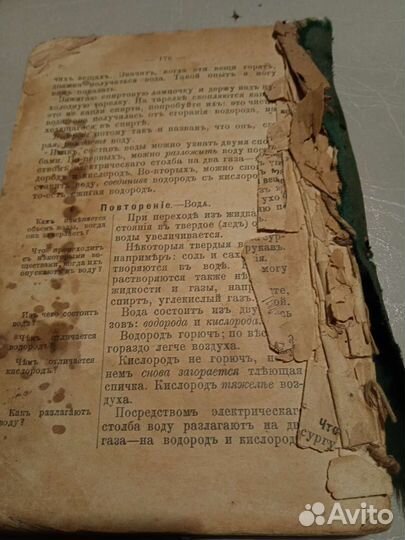 176
чихъ вещахъ. Значитъ, когда эти вещи горятъ,
должна получаться вода. Такой опытъ я могу
вамъ показать.
Зажигаю спиртовую лампочку и держу надъ
холодную тарелку. На тарелкѣ скопляются кап
это не капли спирта, попробуйте ихъ: это чис
вода. Вода получилась отъ сгоранія водорода,
ходящагося въ спиртѣ.
потому такъ и названъ, что онъ, сг
воду
составъ воды можно узнать двумя спосо
бами. Во-первыхъ, можно разложить воду
электрическаго столба на два газа—
дородъ кислородъ. Во-вторыхъ, можно
ставить воду, соединивъ водородъ съ кислоро
то-есть сжигая водородъ.
Повтореніе.—Вода.
Какъ измѣняется
объемъ воды, когда
она замерзаетъ?
При переходѣ изъ жидка
стоянія въ твердое (ледъ) о
воды увеличивается.
Что происходитъ
съ нѣкоторыми
веществами, когда ихъ
опускаютъ въ воду?
Нѣкоторыя твердыя в
напримѣръ: соль и сах
творяются въ водѣ.
растворяются также нѣ
жидкости и газы, напр
спиртъ, углекислый газъ.
Изъ чего состоитъ
вода?
Вода состоитъ изъ дву
зовъ: водорода и кислорода.
Чѣмъ отличается
водородъ?
Водородъ горючъ; по вѣс
гораздо легче воздуха.
Чѣмъ отличается
кислородъ?
Кислородъ не горючъ, н
немъ снова загорается тлѣющая
спичка. Кислородъ тяжелѣе воз-
духа.
Какъ разлагаютъ
воду?
Посредствомъ электрическаг
столба воду разлагаютъ на дв
газа—на водородъ и кислород
Что
сургу
Avito